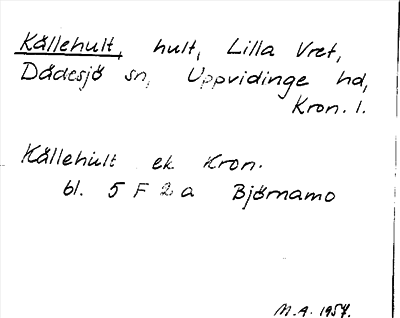 Kållehult, hult, Lilla Vret,
Dädesjö sn, Uppvidinge hd,
Kron. l.
Kållehult ek. Kron.
bl. 5 F 2 a Björnamo
M.A. 1957.